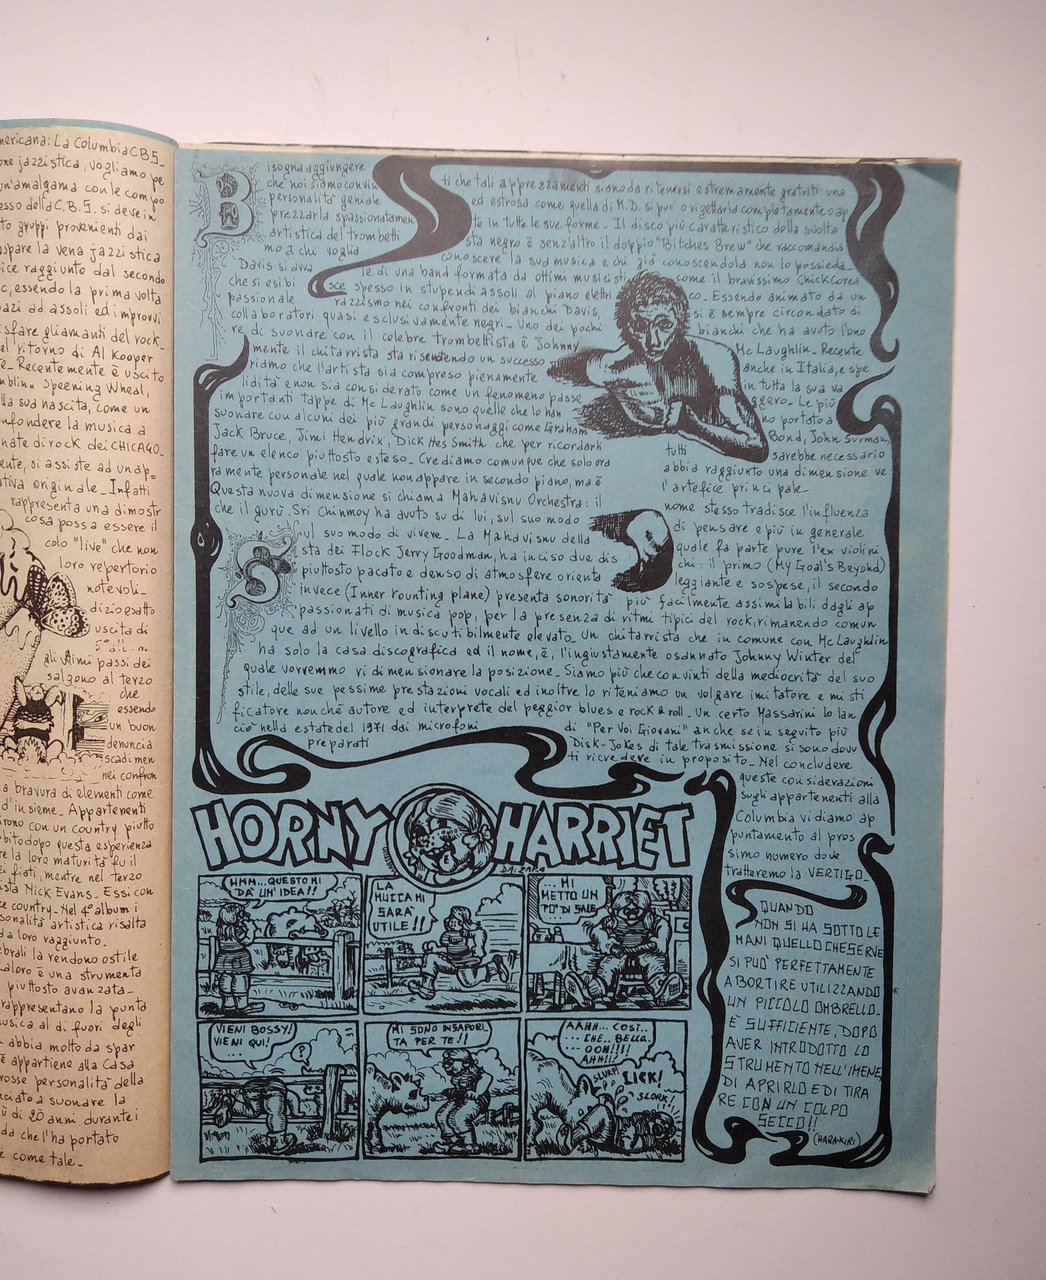 mericana: La Columbia C.B.S_
one jazzistica, vogliamo pe
un'amalgama con le compo
esso della C.B.S. si deve in
to gruppi provenienti dai
aspare la vena jazzistica
oice raggiunto dal secondo
c, essendo la prima volta
azi ad assoli ed improvvi
sfare gli amanti del rock_
el ritorno di Al Kooper
e_ Recentemente è uscito
mblin_ Speening Wheal,
lla sua nascita, come un
onfondere la musica a
nate di rock dei CHICAGO_
ente, si assiste ad un ap=
ativa originale_ Infatti
rappresenta una dimostr
cosa possa essere il
colo "live" che non
loro repertorio
notevoli_
dizio esatto
uscita di
gli ultimi passi dei
salgono al terzo
che
essendo
un buon
denuncia
scadimen
nei confron
a bravura di elementi come
d'insieme_ Appartenenti
irono con un country piutto
bito dopo questa esperienza
re la loro maturità fu il
ei fiati, mentre nel terzo
sta Nick Evans_ Essi con
e country_ Nel 4° album i
sonalità artistica risalta
da loro raggiunto_
ebrali la rendono ostile
Laloro è una strumenta
piuttosto avanzata_
rappresentano la punta
usica al di fuori degli
abbia molto da spar
è appartiene alla Casa
rosse personalità della
nciato a suonare la
ù di 20 anni durante i
da che l'ha portato
e come tale_
Bisogna aggiungere
che noi siamo convin ti che tali apprezzamenti siano da ritenersi estremamente gratuiti: una
personalità geniale ed estrosa come quella di M.D. si può o rigettarla completamente o ap
prezzarla spassionatamen te in tutte le sue forme_ Il disco più caratteristico della svolta
artistica del trombetti sta negro è senz'altro il doppio "Bitches Brew" che raccomandia
mo a chi voglia conoscere la sua musica e chi già conoscendola non lo possieda_
Davis si avva le di una band formata da ottimi musicisti come il bravissimo Chick Corea
che si esibi sce spesso in stupendi assoli al piano elettri co_ Essendo animato da un
passionale razzismo nei confronti dei bianchi Davis, si è sempre circondato di
collaboratori quasi esclusivamente negri_ Uno dei pochi bianchi che ha avuto l'ono
re di suonare con il celebre trombettista è Johnny Mc Laughlin_ Recente
mente il chitarrista sta riscuotendo un successo anche in Italia, e spe
riamo che l'artista sia compreso pienamente in tutta la sua va
lidità e non sia considerato come un fenomeno passe ggero_ Le più
importanti tappe di Mc Laughlin sono quelle che lo han no portato a
suonare con alcuni dei più grandi personaggi come Graham Bond, John Surman,
Jack Bruce, Jimi Hendrix, Dick Hes Smith che per ricordarli tutti sarebbe necessario
fare un elenco piuttosto esteso_ Crediamo comunque che solo ora abbia raggiunto una dimensione ve
ramente personale nel quale non appare in secondo piano, ma è l'artefice principale_
Questa nuova dimensione si chiama Mahavisnu Orchestra: il nome stesso tradisce l'influenza
che il gurù Sri Chinmoy ha avuto su di lui, sul suo modo di pensare e più in generale
Sul suo modo di vivere_ La Mahavisnu della quale fa parte pure l'ex violini
sta dei Flock Jerry Goodman, ha inciso due dis chi: il primo (My Goal's Beyond)
piuttosto pacato e denso di atmosfere orienta leggiante e sospese, il secondo
invece (Inner rounting plane) presenta sonorità più facilmente assimilabili dagli ap
passionati di musica pop, per la presenza di ritmi tipici del rock, rimanendo comun
que ad un livello indiscutibilmente elevato_ Un chitarrista che in comune con Mc Laughlin
ha solo la casa discografica ed il nome, è, l'ingiustamente osannato Johnny Winter del
quale vorremmo ridimensionare la posizione_ Siamo più che convinti della mediocrità del suo
stile, delle sue pessime prestazioni vocali ed inoltre lo riteniamo un volgare imitatore e misti
ficatore nonchè autore ed interprete del peggior blues e rock & roll_ Un certo Massarini lo lan
ciò nella estate del 1971 dai microfoni di "Per Voi Giovani" anche se in seguito più
preparati Disk-Jokes di tale trasmissione si sono dovu
ti ricredere in proposito_ Nel concludere
queste considerazioni
sugli appartenenti alla
Columbia vi diamo ap
puntamento al pros
simo numero dove
tratteremo la VERTIGO_
HORNY HARRIET
DAIZARA
HMM...QUESTO MI
DA' UN'IDEA!!
LA
MUCCA MI
SARA'
UTILE!!
...MI
METTO UN
PO' DI SALE...
VIENI BOSSY!
VIENI QUI!
...
?
MI SONO INSAPORI
TA PER TE!!
AAHH... COSI'..
..CHE..BELLA..
OOH!!!!
AHH!!
SLURP!
LICK!
SLORK!
QUANDO
NON SI HA SOTTO LE
MANI QUELLO CHE SERVE
SI PUO' PERFETTAMENTE
ABORTIRE UTILIZZANDO
UN PICCOLO OMBRELLO.
E' SUFFICIENTE, DOPO
AVER INTRODOTTO LO
STRUMENTO NELL'IMENE,
DI APRIRLO E DI TIRA
RE CON UN COLPO
SECCO!!
(HARA-KIRI)